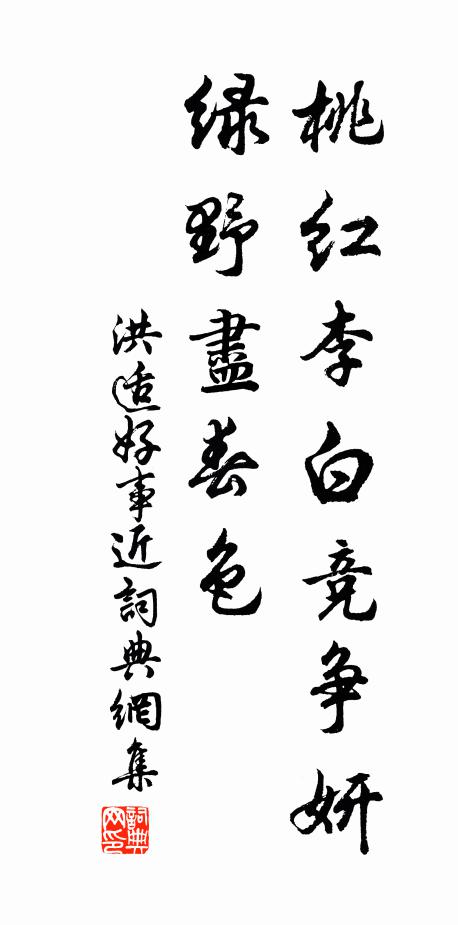 桃红李白竞争妍
绿野盡春色
洪适好事近詞典網集
詞典网印